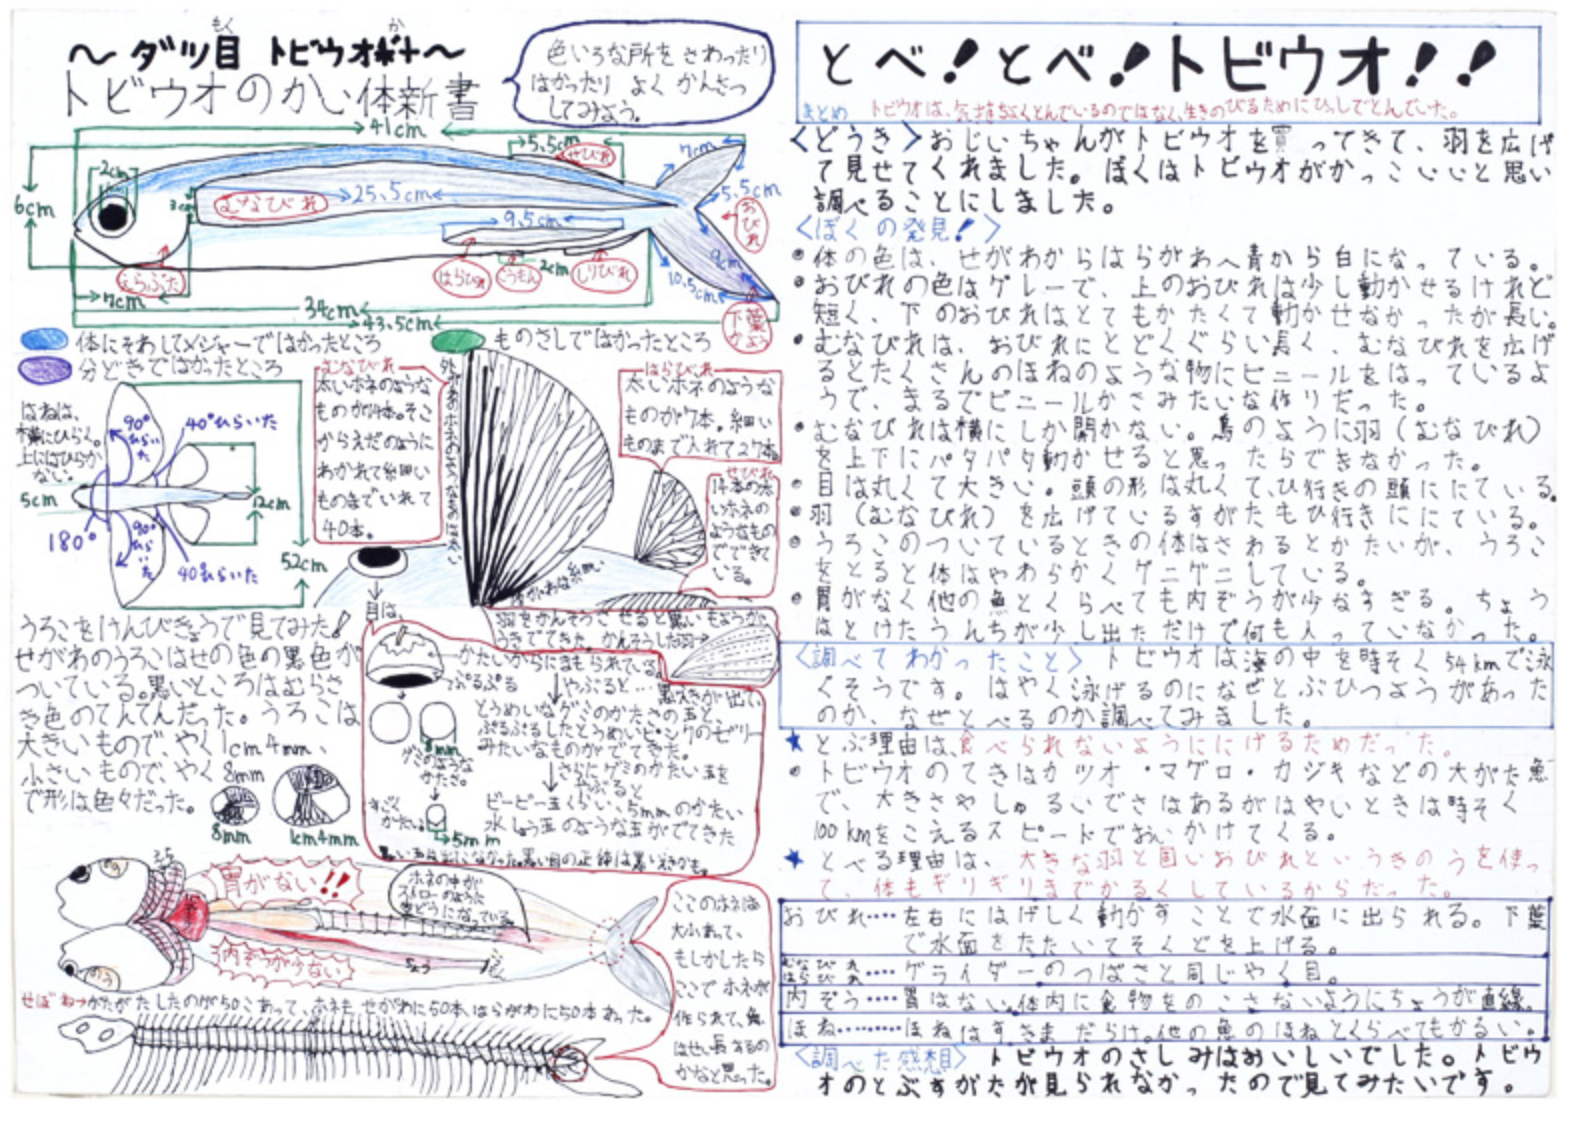 ～ダツ目 トビウオ科～
もく
か
トビウオのかい体新書
色いろな所をさわったり
はかったり よく かんさつ
してみよう。
41cm
5.5cm
せびれ
7cm
2cm
6cm
3cm
むなびれ
25.5cm
5.5cm
おびれ
9.5cm
えらぶた
はらびれ
こうもん
2cm
しりびれ
9cm
10.5cm
7cm
34cm
43.5cm
下葉
かよう
体にそわしてメジャーではかったところ
ものさしではかったところ
分どきではかったところ
はねは、
横にひらく。
上にはひらか
ない。
90°
ひらいた
40°ひらいた
5cm
12cm
180°
90°
ひらいた
40°ひらいた
52cm
むなびれ
太いホネのような
ものが14本。そこ
からえだのように
わかれて細い
ものまでいれて
40本。
はらびれ
太いホネのような
ものが7本。細い
ものまで入れて27本。
せびれ
14本の太
いホネの
ようなもの
でできて
いる。
うろこをけんびきょうで見てみた！
せがわのうろこはせの色の黒色が
ついている。黒いところはむらさ
き色のてんてんだった。うろこは
大きいもので、やく1cm4mm、
小さいもので、やく8mm
で形は色々だった。
8mm
1cm4mm
目は、
羽をかんそうさせると黒いもようが
ういてきた。かんそうした羽→
かたいからにまもられている。
ぷるぷる
やぶると…
黒えきが出て、
とうめいなグミのかたさの玉と、
ぷるぷるしたとうめいピンクのゼリー
みたいなものがでてきた。
8mm
グミのような
かたさ。
さらにグミのかたい玉を
やぶると
ビービー玉くらい、5mmのかたい
水しょう玉のような玉がでてきた
すごく
かたい
5mm
胃がない!!
内ぞうが少ない
ちょう
ホネの中が
ストローのように
空どうになっている。
ここのホネは
大小あって、
もしかしたら
ここでホネが
作られて、魚
はせい長するの
かなと思った。
せぼね→かたがたしたのが50こあって、ホネも せがわに50本、はらがわに50本あった。
とべ！とべ！トビウオ！！
まとめ トビウオは、気持ちよくとんでいるのではなく、生きのびるためにひっしでとんでいた。
〈どうき〉おじいちゃんがトビウオを買ってきて、羽を広げ
て見せてくれました。ぼくはトビウオがかっこいいと思い
調べることにしました。
〈ぼくの発見！〉
●体の色は、せがわからはらがわへ青から白になっている。
●おびれの色はグレーで、上のおびれは少し動かせるけれど
短く、下のおびれはとてもかたくて動かせなかったが長い。
●むなびれは、おびれにとどくぐらい長く、むなびれを広げ
るとたくさんのほねのような物にビニールをはっているよ
うで、まるでビニールかさみたいな作りだった。
●むなびれは横にしか開かない。鳥のように羽（むなびれ）
を上下にパタパタ動かせると思ったらできなかった。
●目は丸くて大きい。頭の形は丸くて、ひ行きの頭ににている。
●羽（むなびれ）を広げているすがたもひ行きににている。
●うろこのついているときの体はさわるとかたいが、うろこ
をとると体はやわらかくグニグニしている。
●胃がなく他の魚とくらべても内ぞうが少なすぎる。ちょう
はとけたうんちが少し出ただけで何も入っていなかった。
〈調べてわかったこと〉 トビウオは海の中を時そく54kmで泳
ぐそうです。はやく泳げるのになぜとぶひつようがあった
のか、なぜとべるのか調べてみました。
★とぶ理由は、食べられないようににげるためだった。
●トビウオのてきはカツオ・マグロ・カジキなどの大がた魚
で、大きさやしゅるいでさはあるがはやいときは時そく
100kmをこえるスピードでおいかけてくる。
★とべる理由は、大きな羽と固いおびれと、うきのうを使っ
て、体もギリギリまでかるくしているからだった。
おびれ…左右にはげしく動かすことで水面に出られる。下葉
で水面をたたいてそくどを上げる。
むなびれ
はらびれ…グライダーのつばさと同じやく目。
内ぞう…胃はない。体内に食物をのこさないようにちょうが直線。
ほね………ほねはすきまだらけ。他の魚のほねとくらべてもかるい。
〈調べた感想〉 トビウオのさしみはおいしいでした。トビウ
オのとぶすがたが見られなかったので見てみたいです。